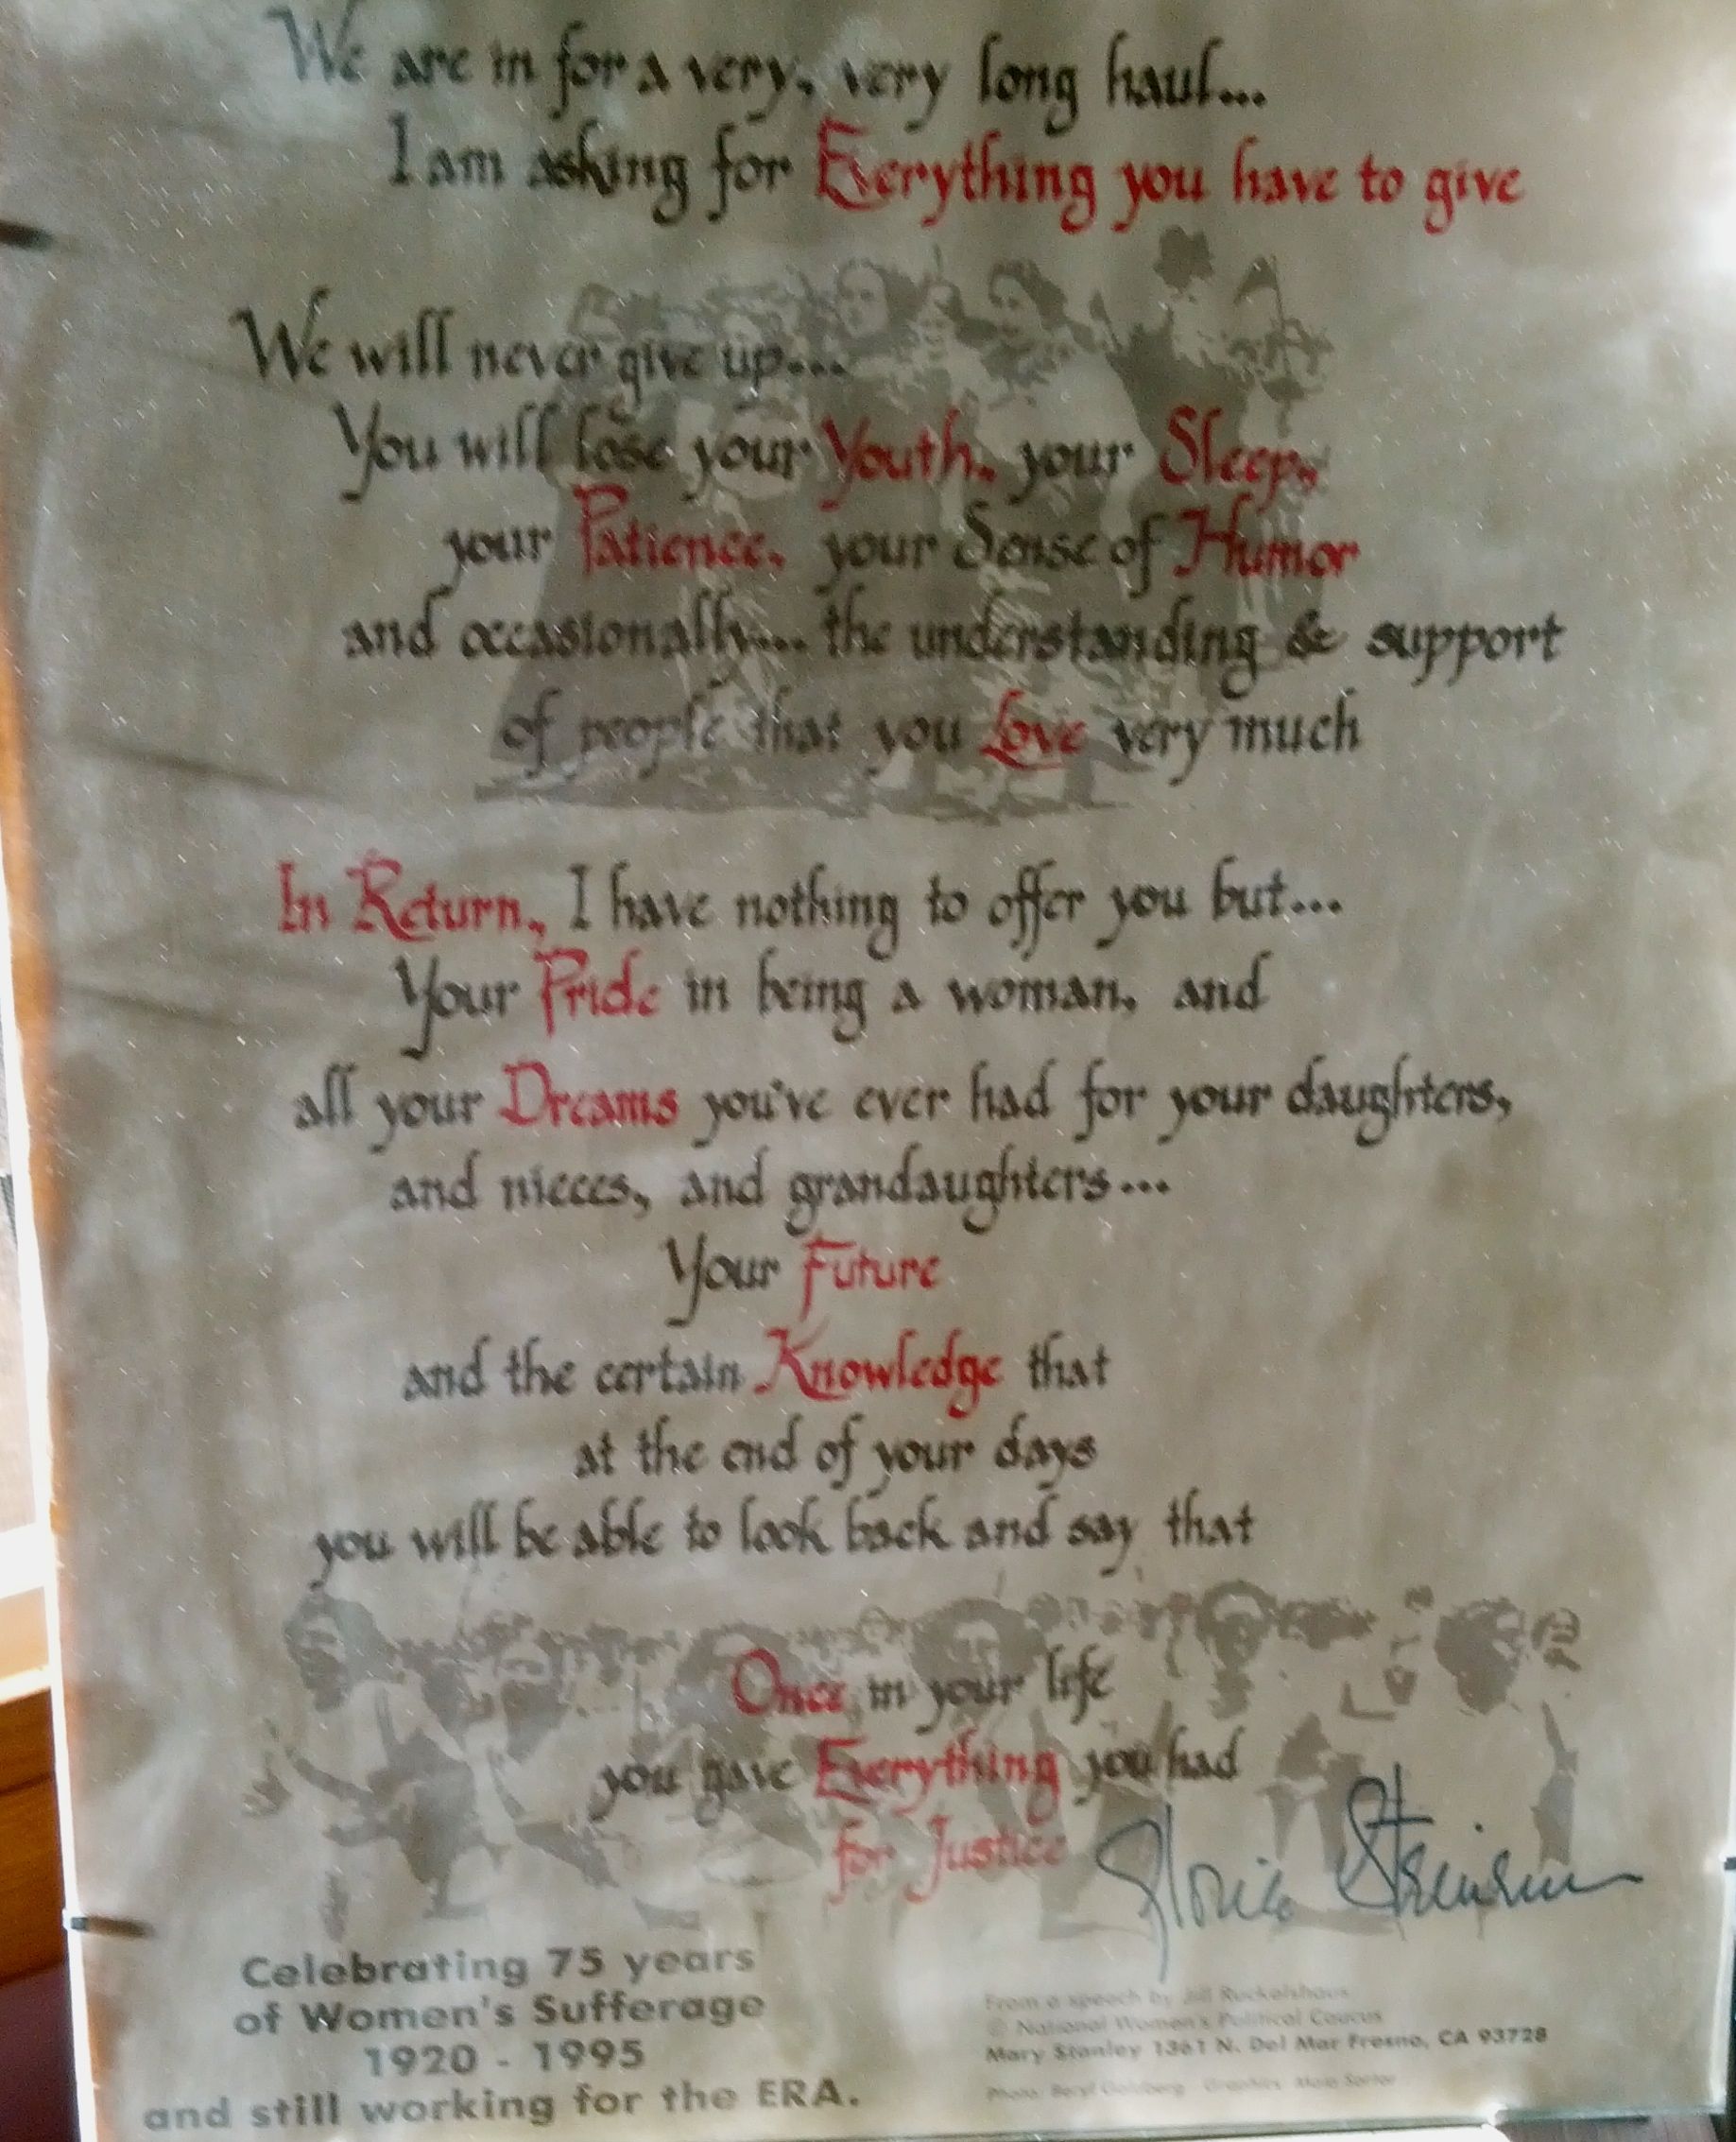 We are in for a very, very long haul...
I am asking for Everything you have to give
We will never give up...
You will lose your Youth, your Sleep,
your Patience, your Sense of Humor
and occasionally... the understanding & support
of people that you Love very much
In Return, I have nothing to offer you but...
Your Pride in being a woman, and
all your Dreams you've ever had for your daughters,
and nieces, and grandaughters...
Your Future
and the certain Knowledge that
at the end of your days
you will be able to look back and say that
Once in your life
you gave Everything you had
for Justice
Gloria Steinem
Celebrating 75 years
of Women's Sufferage
1920 - 1995
and still working for the ERA.
From a speech by Jill Ruckelshaus
© National Women's Political Caucus
Mary Stanley 1361 N. Del Mar Fresno, CA 93728
Photo: Beryl Goldberg Graphics: